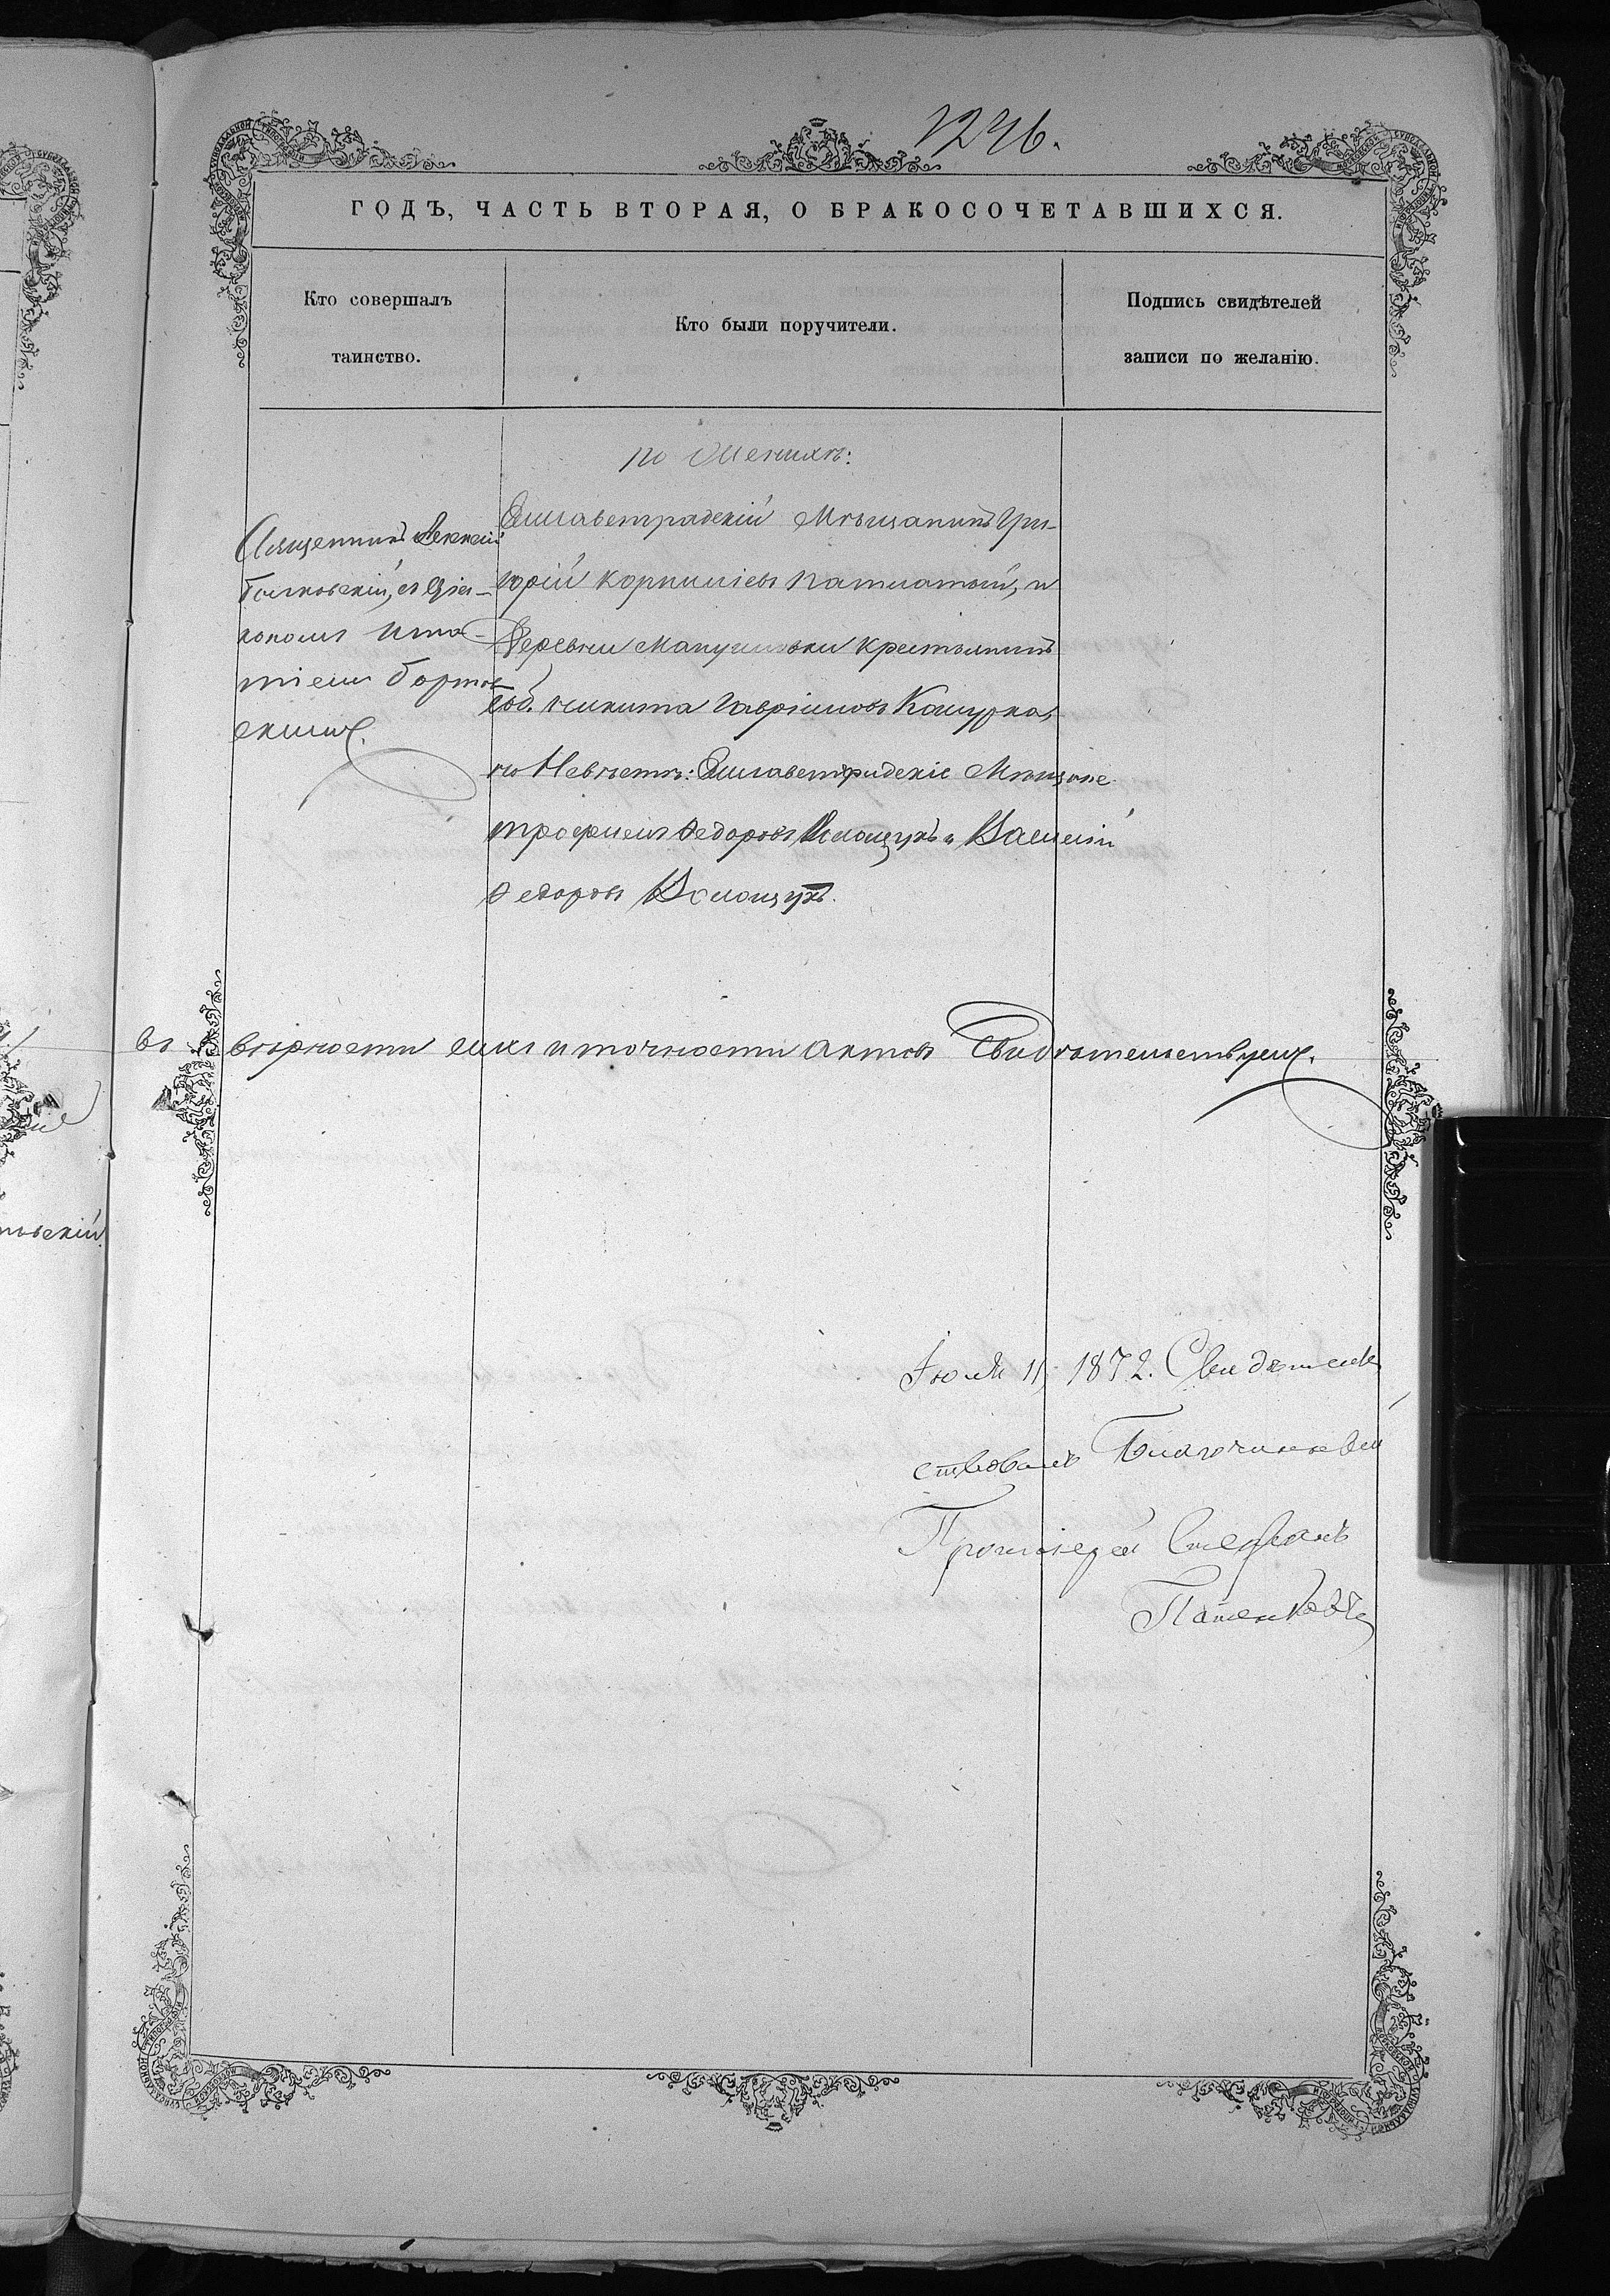 1246.
ГОДЪ, ЧАСТЬ ВТОРАЯ, О БРАКОСОЧЕТАВШИХСЯ.
Кто совершалъ
таинство.
Кто были поручители.
Подпись свидѣтелей
записи по желанію.
по Женихѣ:
Священникъ Алексій
съ Діа-
кономъ Игна-
тіемъ Бортов-
скимъ.
Елисаветградскій Мѣщанинъ Гри-
горій Корниліевъ и
Деревни крестьянинъ
соб. Никита Гавріиловъ
по Невѣстѣ: Елисаветградскіе Мѣщане
Трофимъ Федоровъ Волощукъ и Василій
Федоровъ Волощукъ.
Въ вѣрности сихъ и точности актовъ Свидѣтельствуемъ.
Іюля 11, 1872. Свидѣтель
ствовалъ Благочинный
Протоіерей Стефанъ